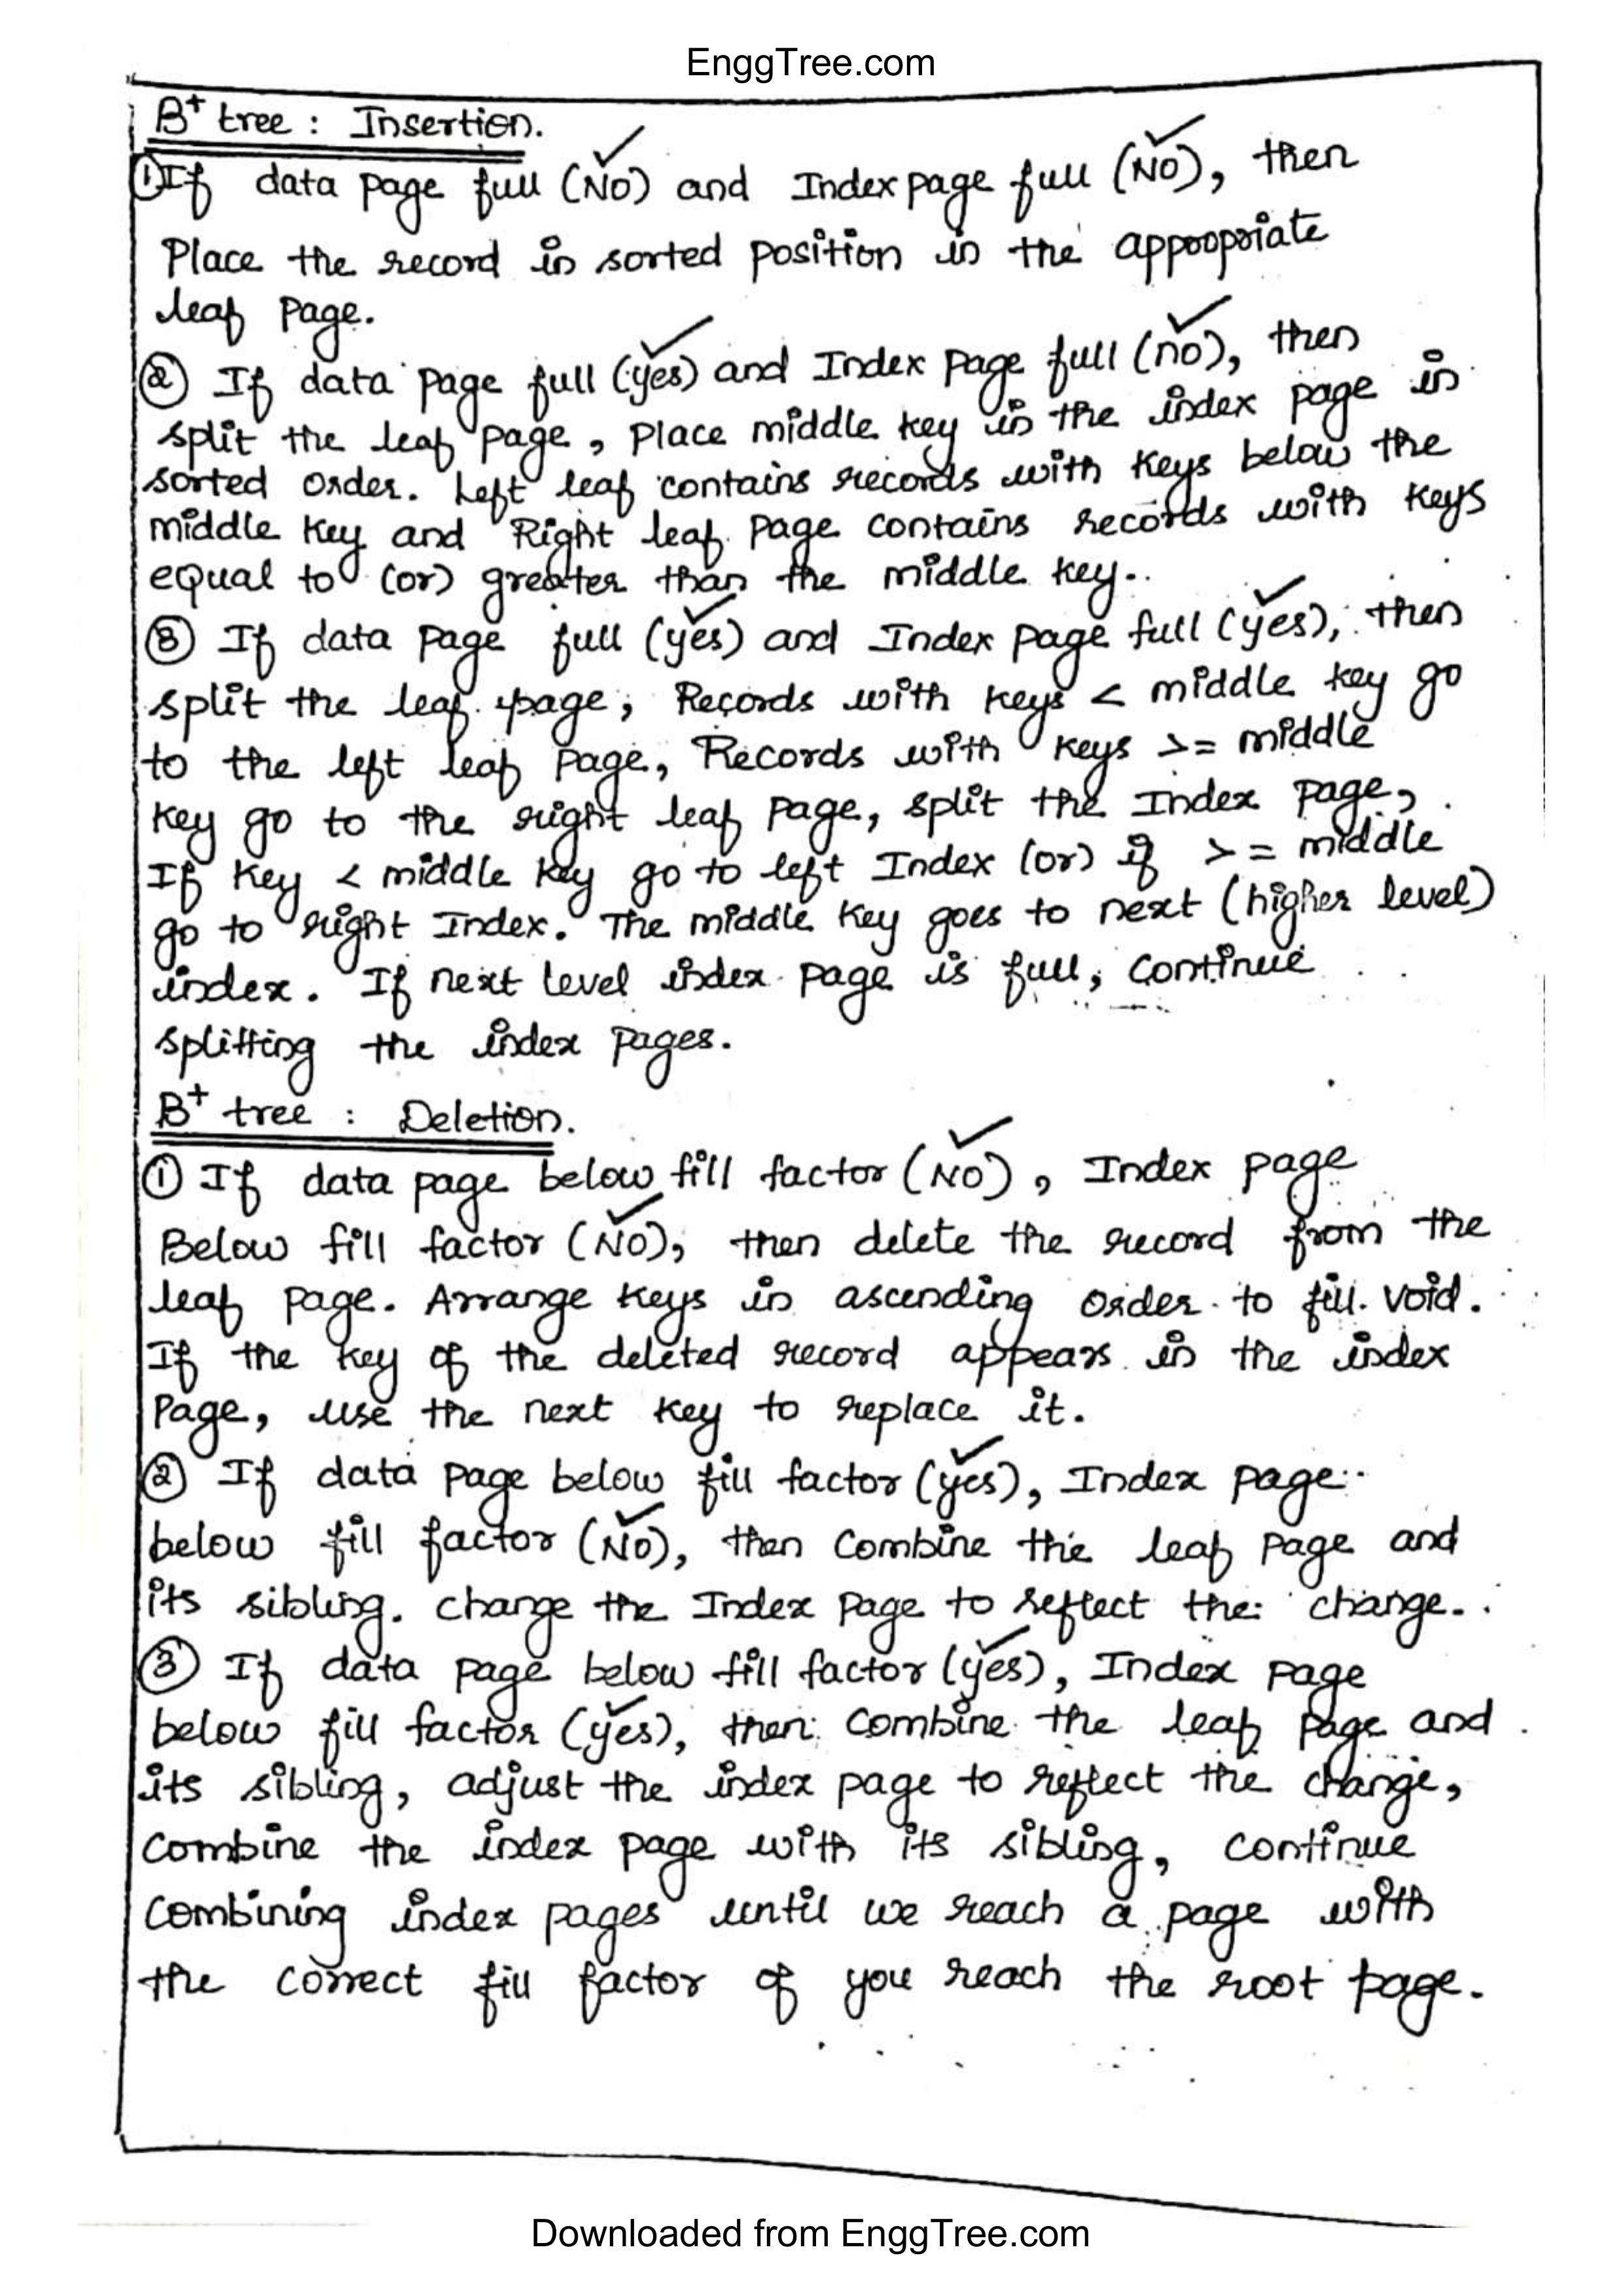 EnggTree.com
B+ tree : Insertion.
① If data page full (NO) and Index page full (NO), then
Place the record in sorted position in the appropriate
leaf page.
② If data page full (yes) and Index page full (no), then
split the leaf page, Place middle key in the index page in
sorted order. Left leaf contains records with keys below the
middle key and Right leaf page contains records with keys
equal to (or) greater than the middle key.
③ If data page full (yes) and Index page full (yes), then
split the leaf page; Records with keys < middle key go
to the left leaf page, Records with keys >= middle
key go to the right leaf page, split the Index page,
If key < middle key go to left Index (or) if >= middle
go to right Index. The middle key goes to next (higher level)
index. If next level index page is full, continue
splitting the index pages.
B+ tree : Deletion.
① If data page below fill factor (NO), Index page
Below fill factor (NO), then delete the record from the
leaf page. Arrange keys in ascending order to fill void.
If the key of the deleted record appears in the index
Page, use the next key to replace it.
② If data page below fill factor (yes), Index page
below fill factor (NO), then combine the leaf page and
its sibling. change the Index page to reflect the change.
③ If data page below fill factor (yes), Index page
below fill factor (yes), then combine the leaf page and
its sibling, adjust the index page to reflect the change,
combine the index page with its sibling, continue
combining index pages until we reach a page with
the correct fill factor of you reach the root page.
Downloaded from EnggTree.com